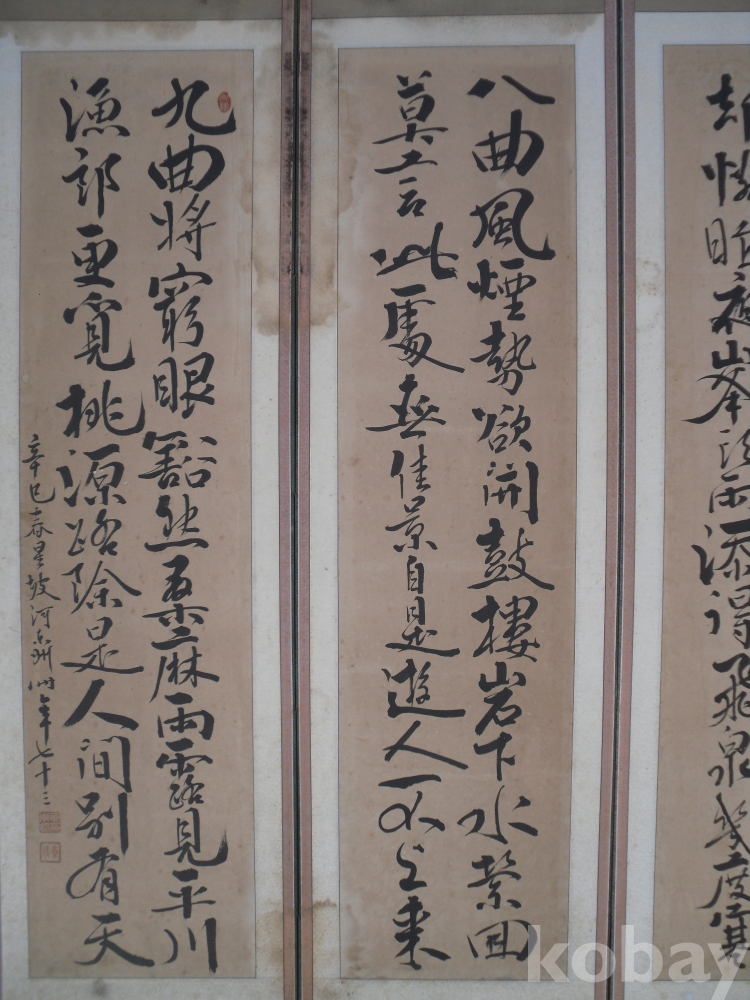 却憐昨夜峯頭雨添得飛泉幾度寒
八曲風煙勢欲開鼓樓岩下水縈回
莫言此處無佳景自是遊人不上來
九曲將窮眼豁然桑麻雨露見平川
漁郎更覓桃源路除是人間別有天
辛巳春星坡河東洲時年七十三
kobay